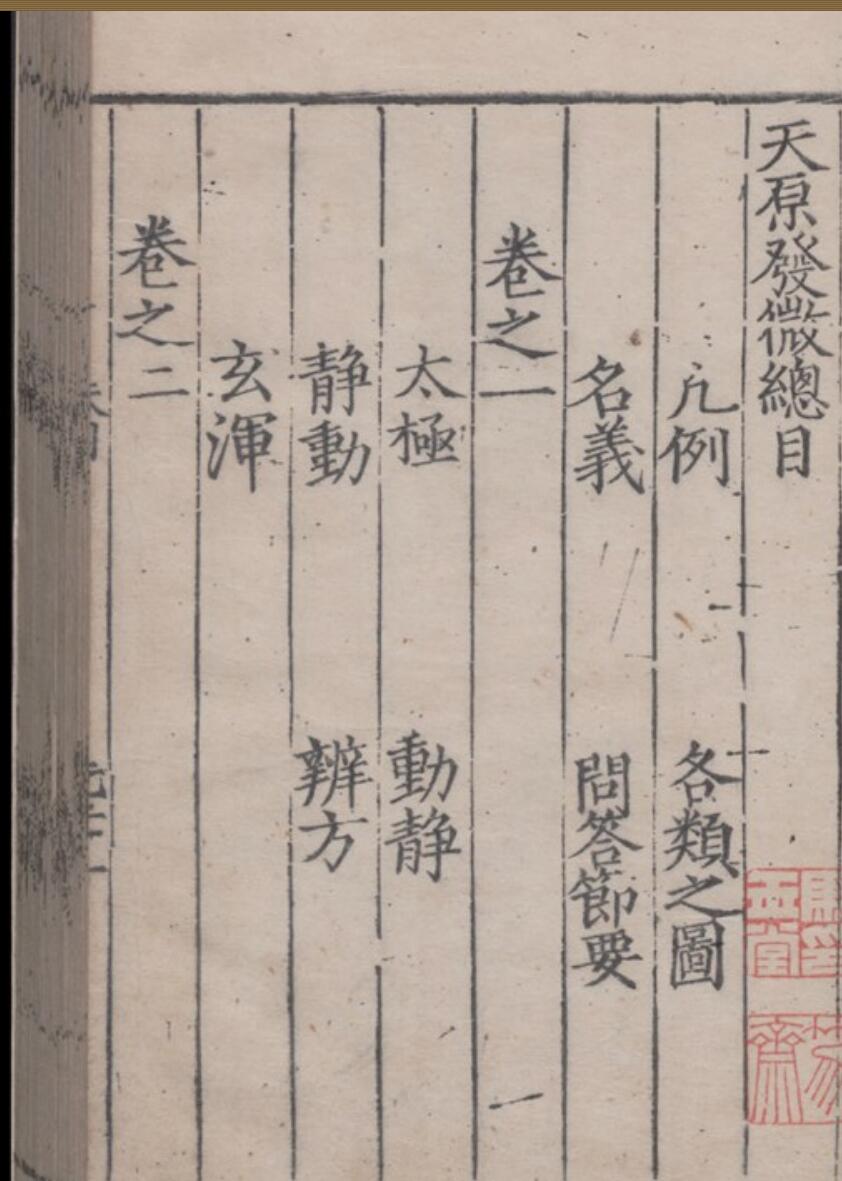 天原發微總目
凡例 各類之圖
名義 問答節要
卷之一
太極 動静
静動 辨方
玄渾
卷之二